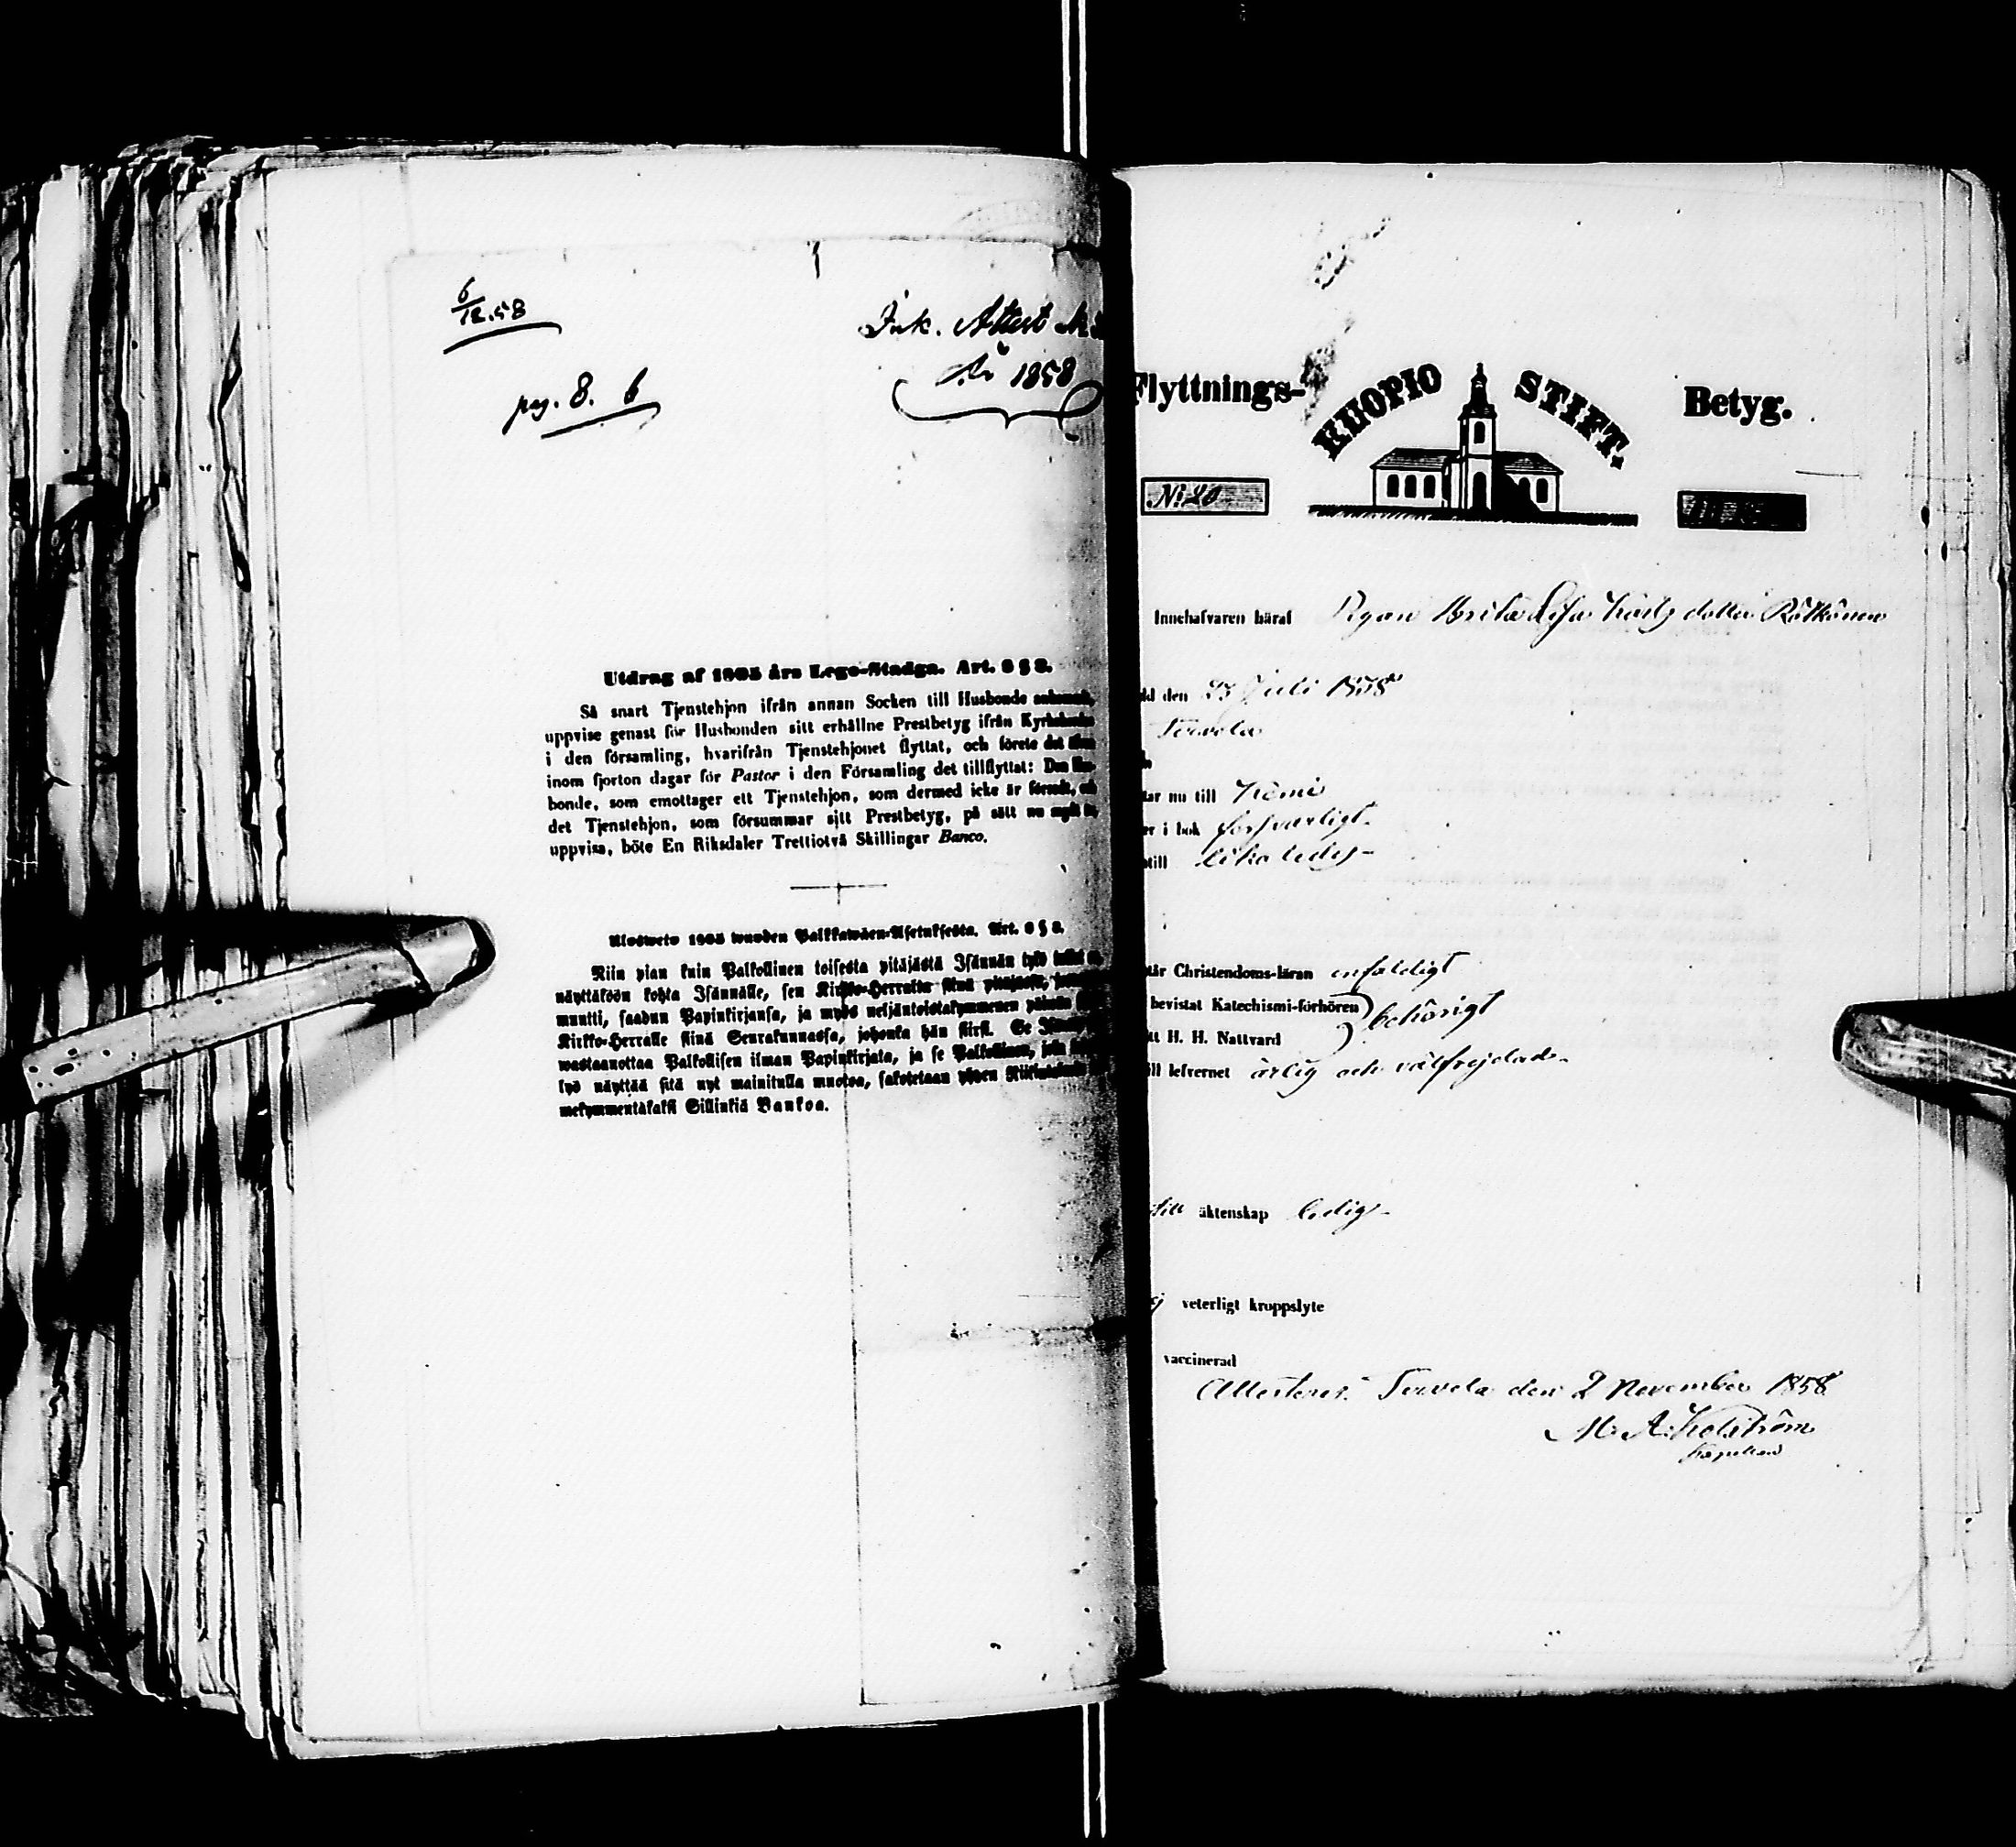 6/12.58
Ink. Attest N:
År 1858
pag. 8. 6
Utdrag af 1805 års Lego-Stadga. Art. 6 § 8.
Så snart Tjenstehjon ifrån annan Socken till Husbonde
uppvise genast för Husbonden sitt erhållne Prestbetyg ifrån
i den församling, hvarifrån Tjenstehjonet flyttat, och förete det
inom fjorton dagar för Pastor i den Församling det tillflyttat: Den
bonde, som emottager ett Tjenstehjon, som dermed icke är försedt,
det Tjenstehjon, som försummar sitt Prestbetyg, på sätt nu
uppvisa, böte En Riksdaler Trettiotvå Skillingar Banco.
Ulosweto 1805 wuoden Palkkawäen-Asetuksesta. Art. 6 § 8.
Niin pian kuin Palkollinen toisesta pitäjästä Isännän tykö
näyttäköön kohta Isännälle, sen Kirkko-Herralta siinä pitäjäsä,
muutti, saadun Papinkirjansa, ja myös neljäntoistakymmenen päiwän
Kirkko-Herralle siinä Seurakunnassa, johonka hän siirsi. Se
wastaanottaa Palkollisen ilman Papinkirjata, ja se Palkollinen,
lyö näyttää sitä nyt mainitulla muotoa, sakotetaan yhden
mekymmentäkaksi Sillinkiä Bankoa.
Flyttnings- KUOPIO STIFT. Betyg.
N: 20
Innehafvaren häraf Pigan Brita Lisa Karlsdotter Rötkönen
dd den 23 Juli 1838
Tervola
tar nu till Kemi
er i bok försvarligt
till likaledes
tår Christendoms-läran enfaldigt
bevistat Katechismi-förhören behörigt
tt H. H. Nattvard
ill lefvernet ärlig och välfrejdad
till äktenskap ledig
ej veterligt kroppslyte
vaccinerad
Attesterar. Tervola den 2 November 1858
M. A. Holström
Kapellan